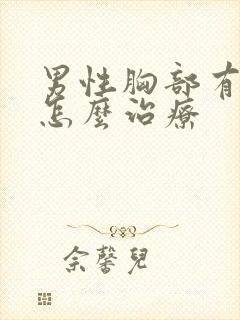 男性胸部有
怎麼治療
佘馨兒